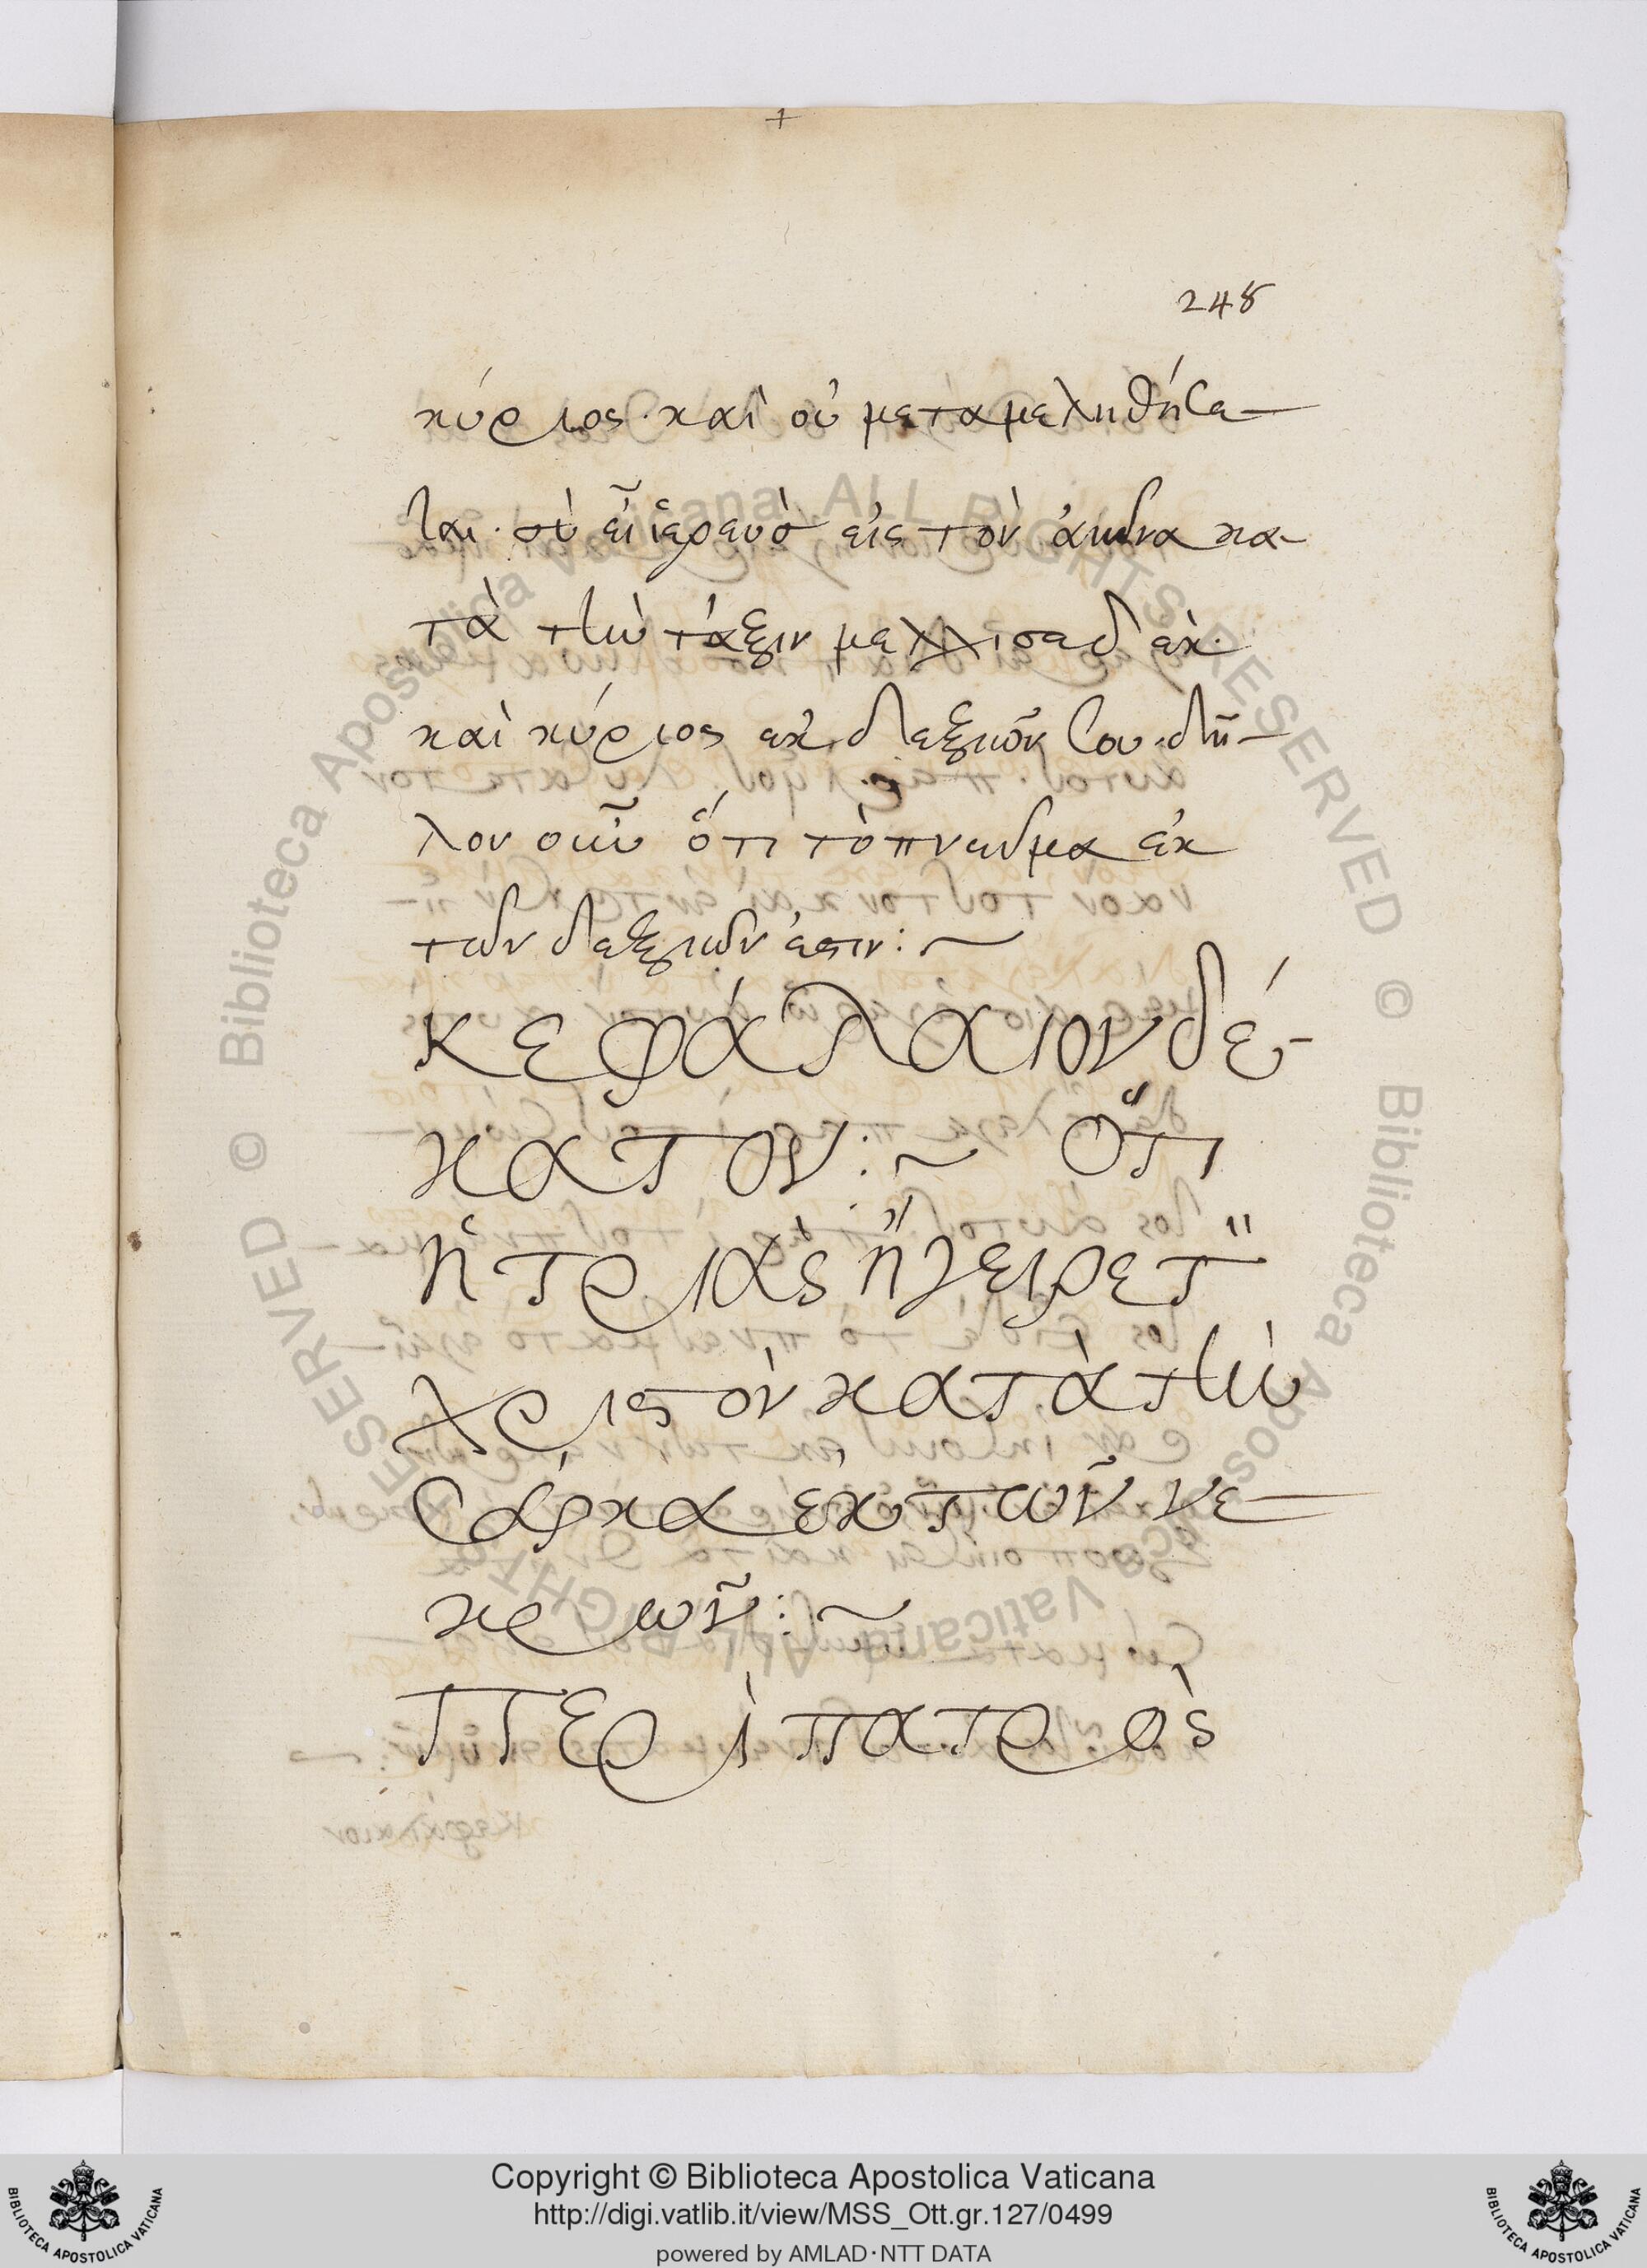 248
κύριος· καὶ οὐ μεταμεληθήσε-
ται· σὺ εἶ ἱερεὺσ εἰς τὸν ἀιῶνα κα-
τὰ τὴν τάξιν μελχισεδέκ·
καὶ κύριος ἐκ δεξιῶν σου. δῆ-
λον οὖν ὅτι τὸ πνεῦμα ἐκ
τῶν δεξιῶν ἐστιν:~
κεφάλαιον δέ-
κατον:~ Ὅτι
ἡ τριὰς ἤγειρε τ"
χριστὸν κατὰ τὴν
σάρκα ἐκ τῶν νε-
κρῶν:~
Περὶ πατρὸς
Copyright © Biblioteca Apostolica Vaticana
http://digi.vatlib.it/view/MSS_Ott.gr.127/0499
powered by AMLAD·NTT DATA